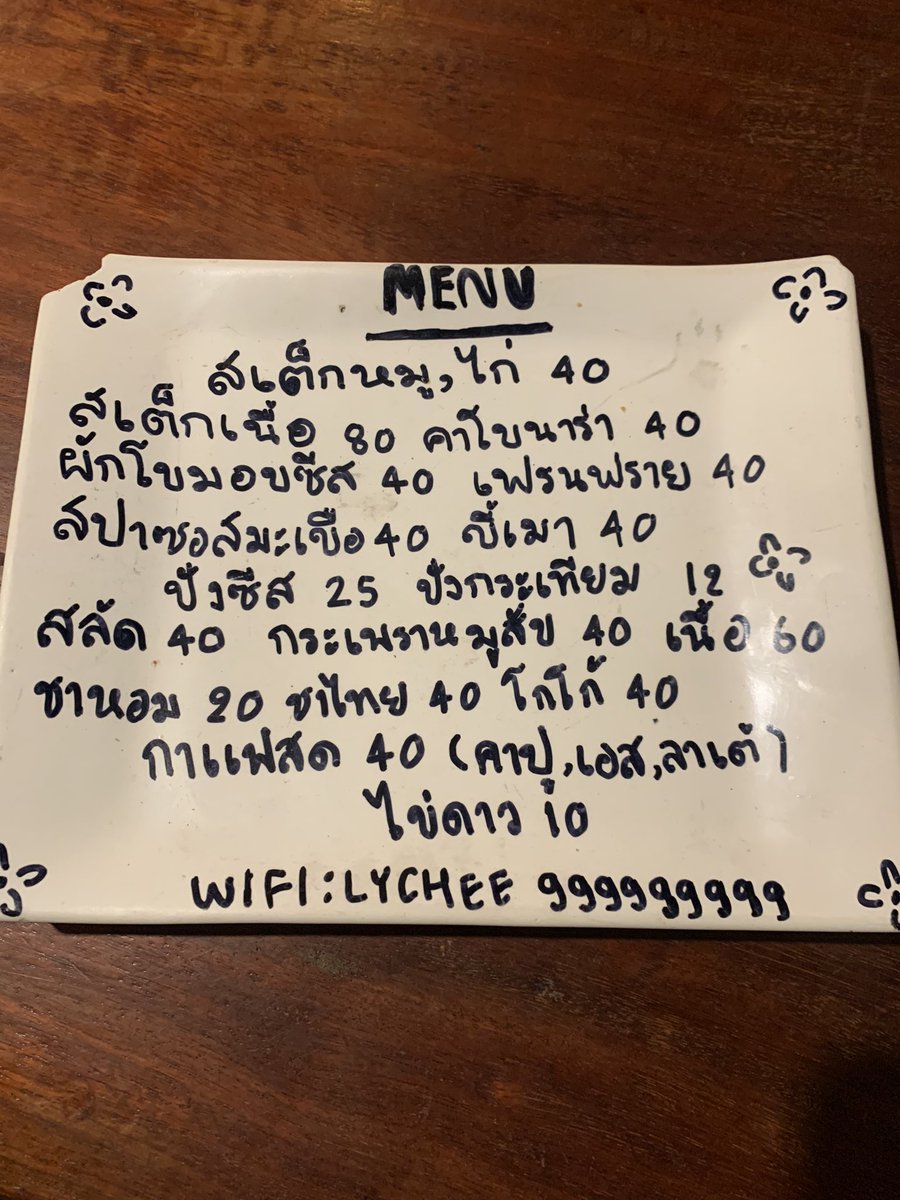 MENU
สเต็กหมู,ไก่ 40
สเต็กเนื้อ 80 คาโบนาร่า 40
ผักโขมอบชีส 40 เฟรนฟราย 40
สปาซอสมะเขือ 40 ขี้เมา 40
ปังชีส 25 ปังกระเทียม 12
สลัด 40 กระเพราหมูสับ 40 เนื้อ 60
ชาหอม 20 ชาไทย 40 โกโก้ 40
กาแฟสด 40 (คาปู,เอส,ลาเต้)
ไข่ดาว 10
WIFI:LYCHEE 999999999